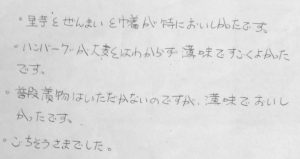 ・里芋とぜんまいと巾着が特においしかったです。
・ハンバーグが大変とはわからず 薄味ですごくよかった
です。
・普段漬物はいただかないのですが、薄味でおいし
かったです。
・ごちそうさまでした。